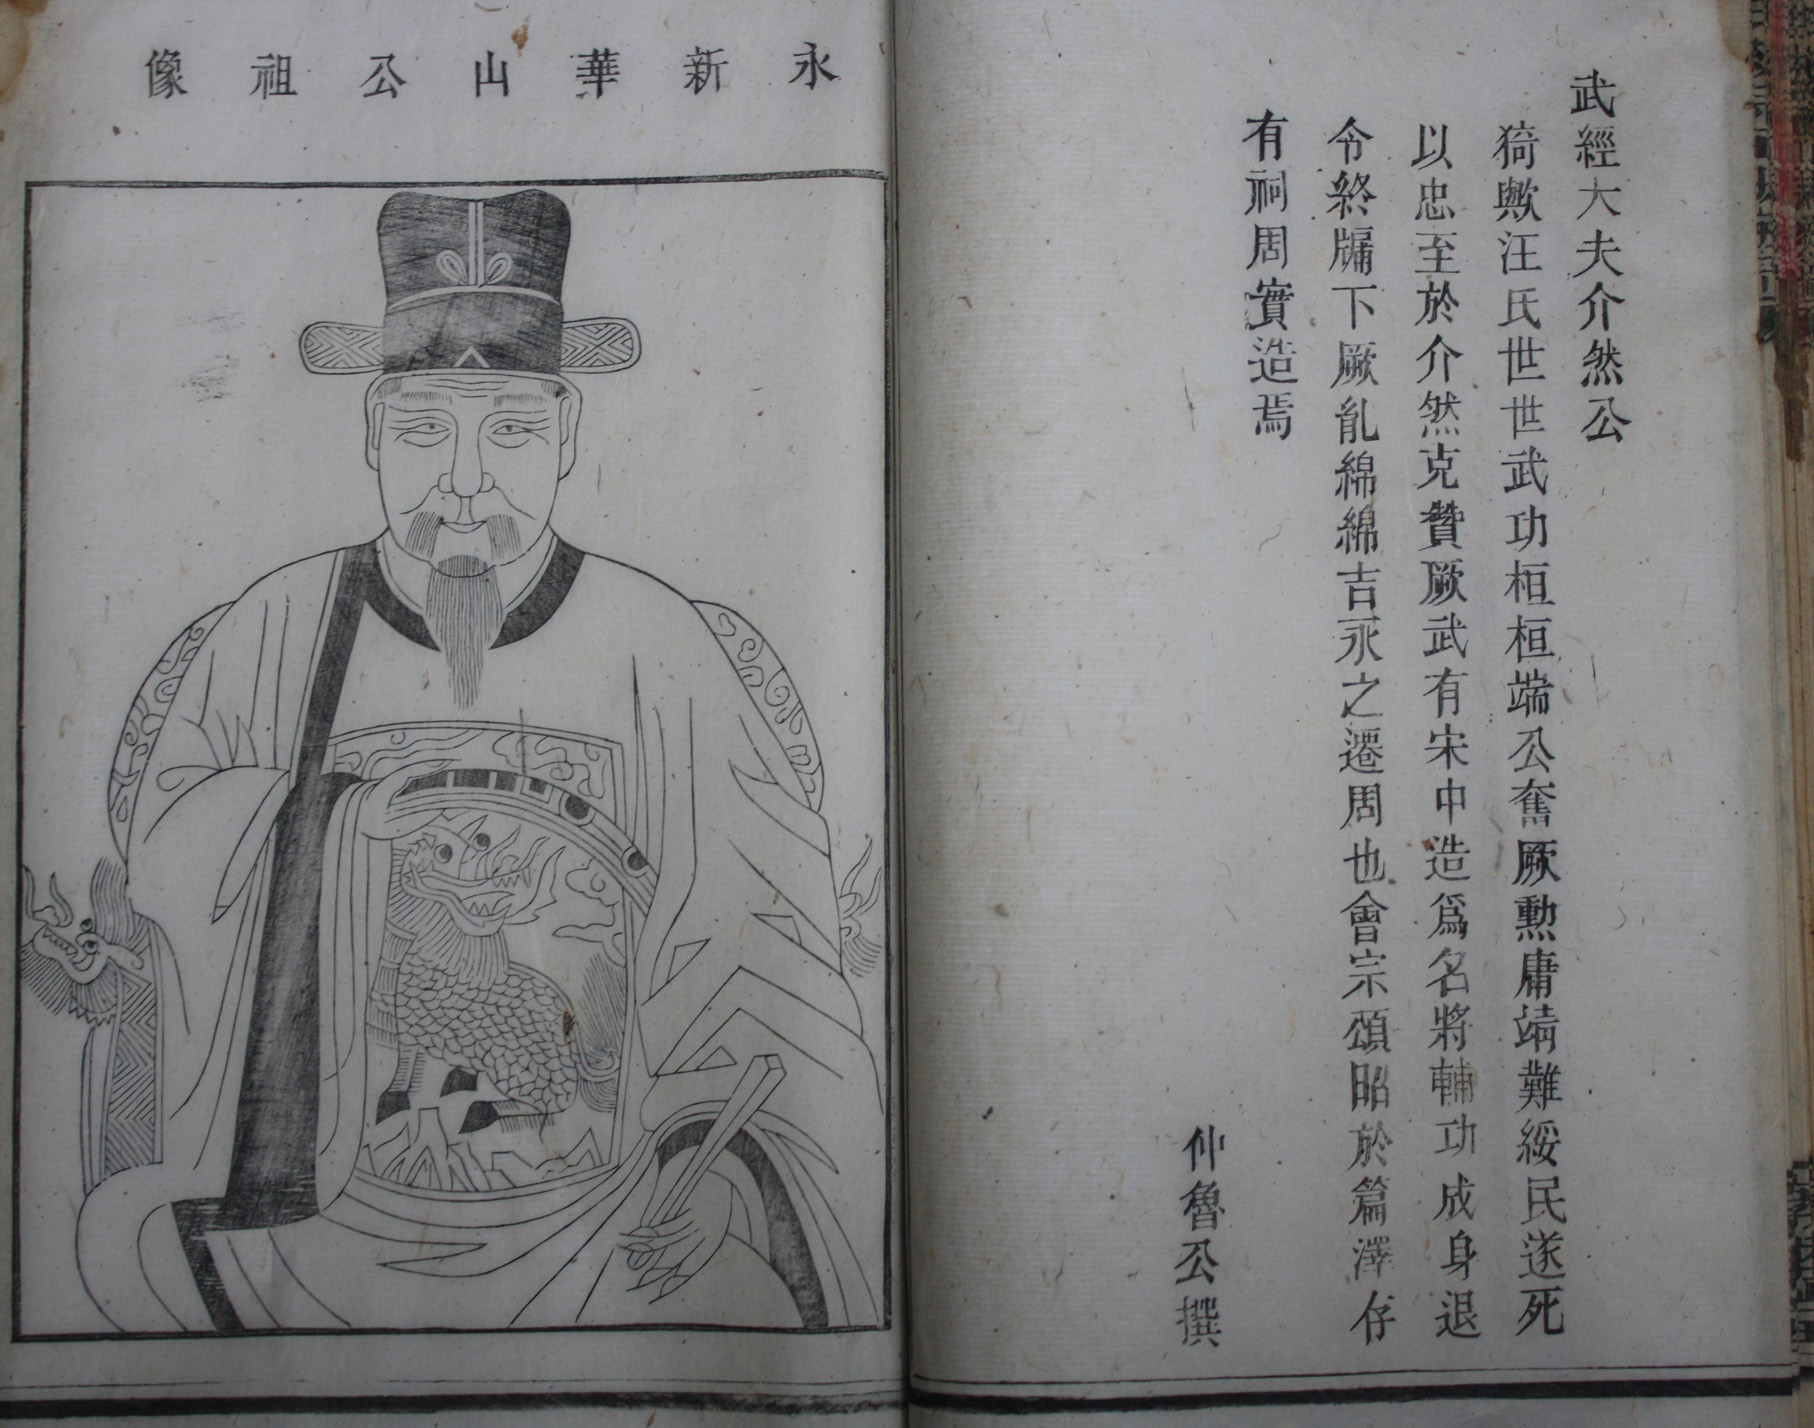 武經大夫介然公
猗歟汪氏世世武功桓桓端公奮厥勳庸靖難綏民遂死
以忠至於介然克贊厥武有宋中造爲名將輔功成身退
令終牖下厥胤綿綿吉永之遷周也會宗頌昭於篇澤存
有祠周實造焉
仲魯公撰
永新華山公祖像